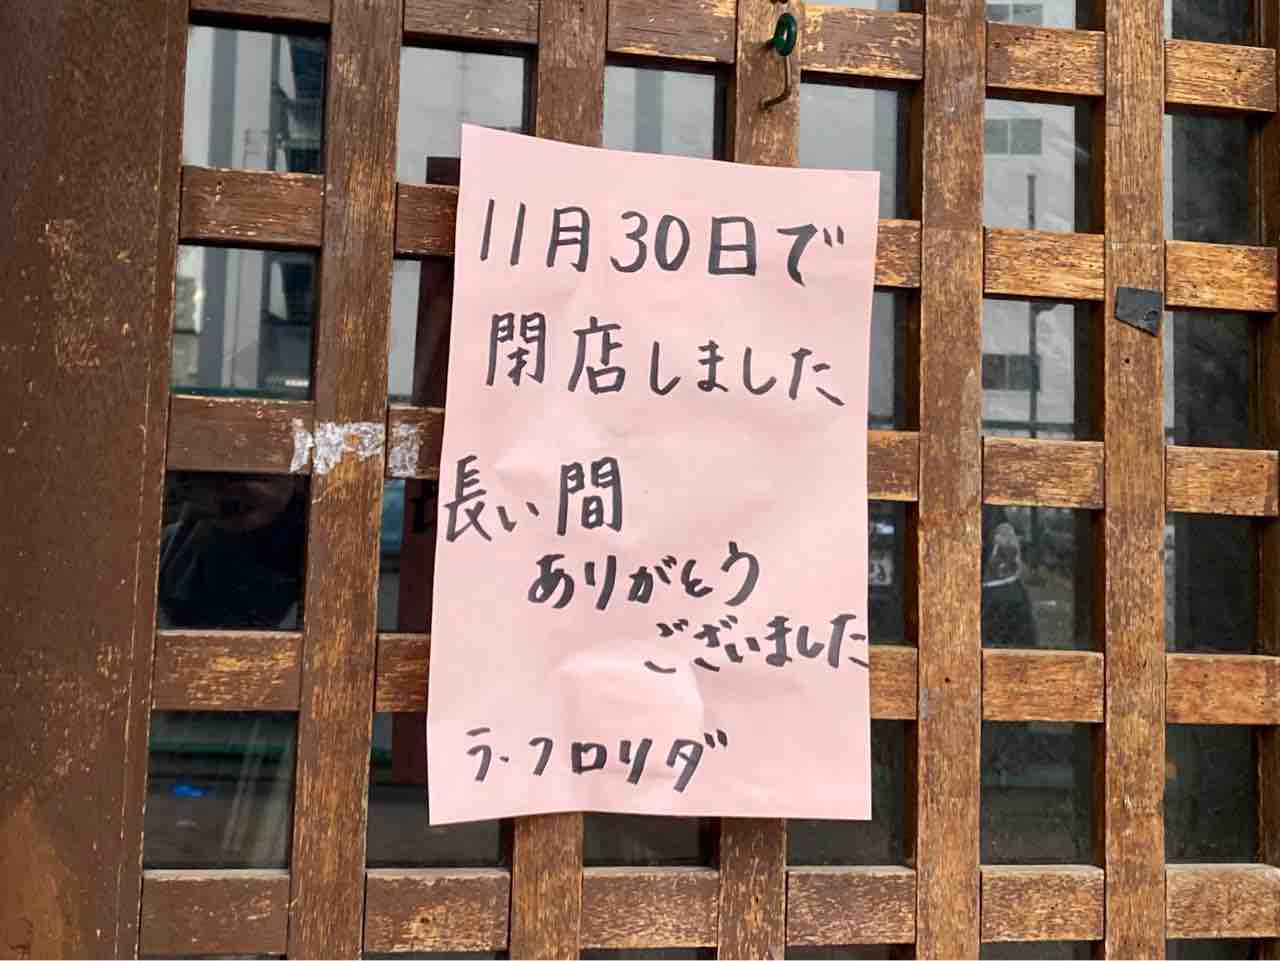 11月30日で
閉店しました
長い間
ありがとう
ございました
ラ・フロリダ